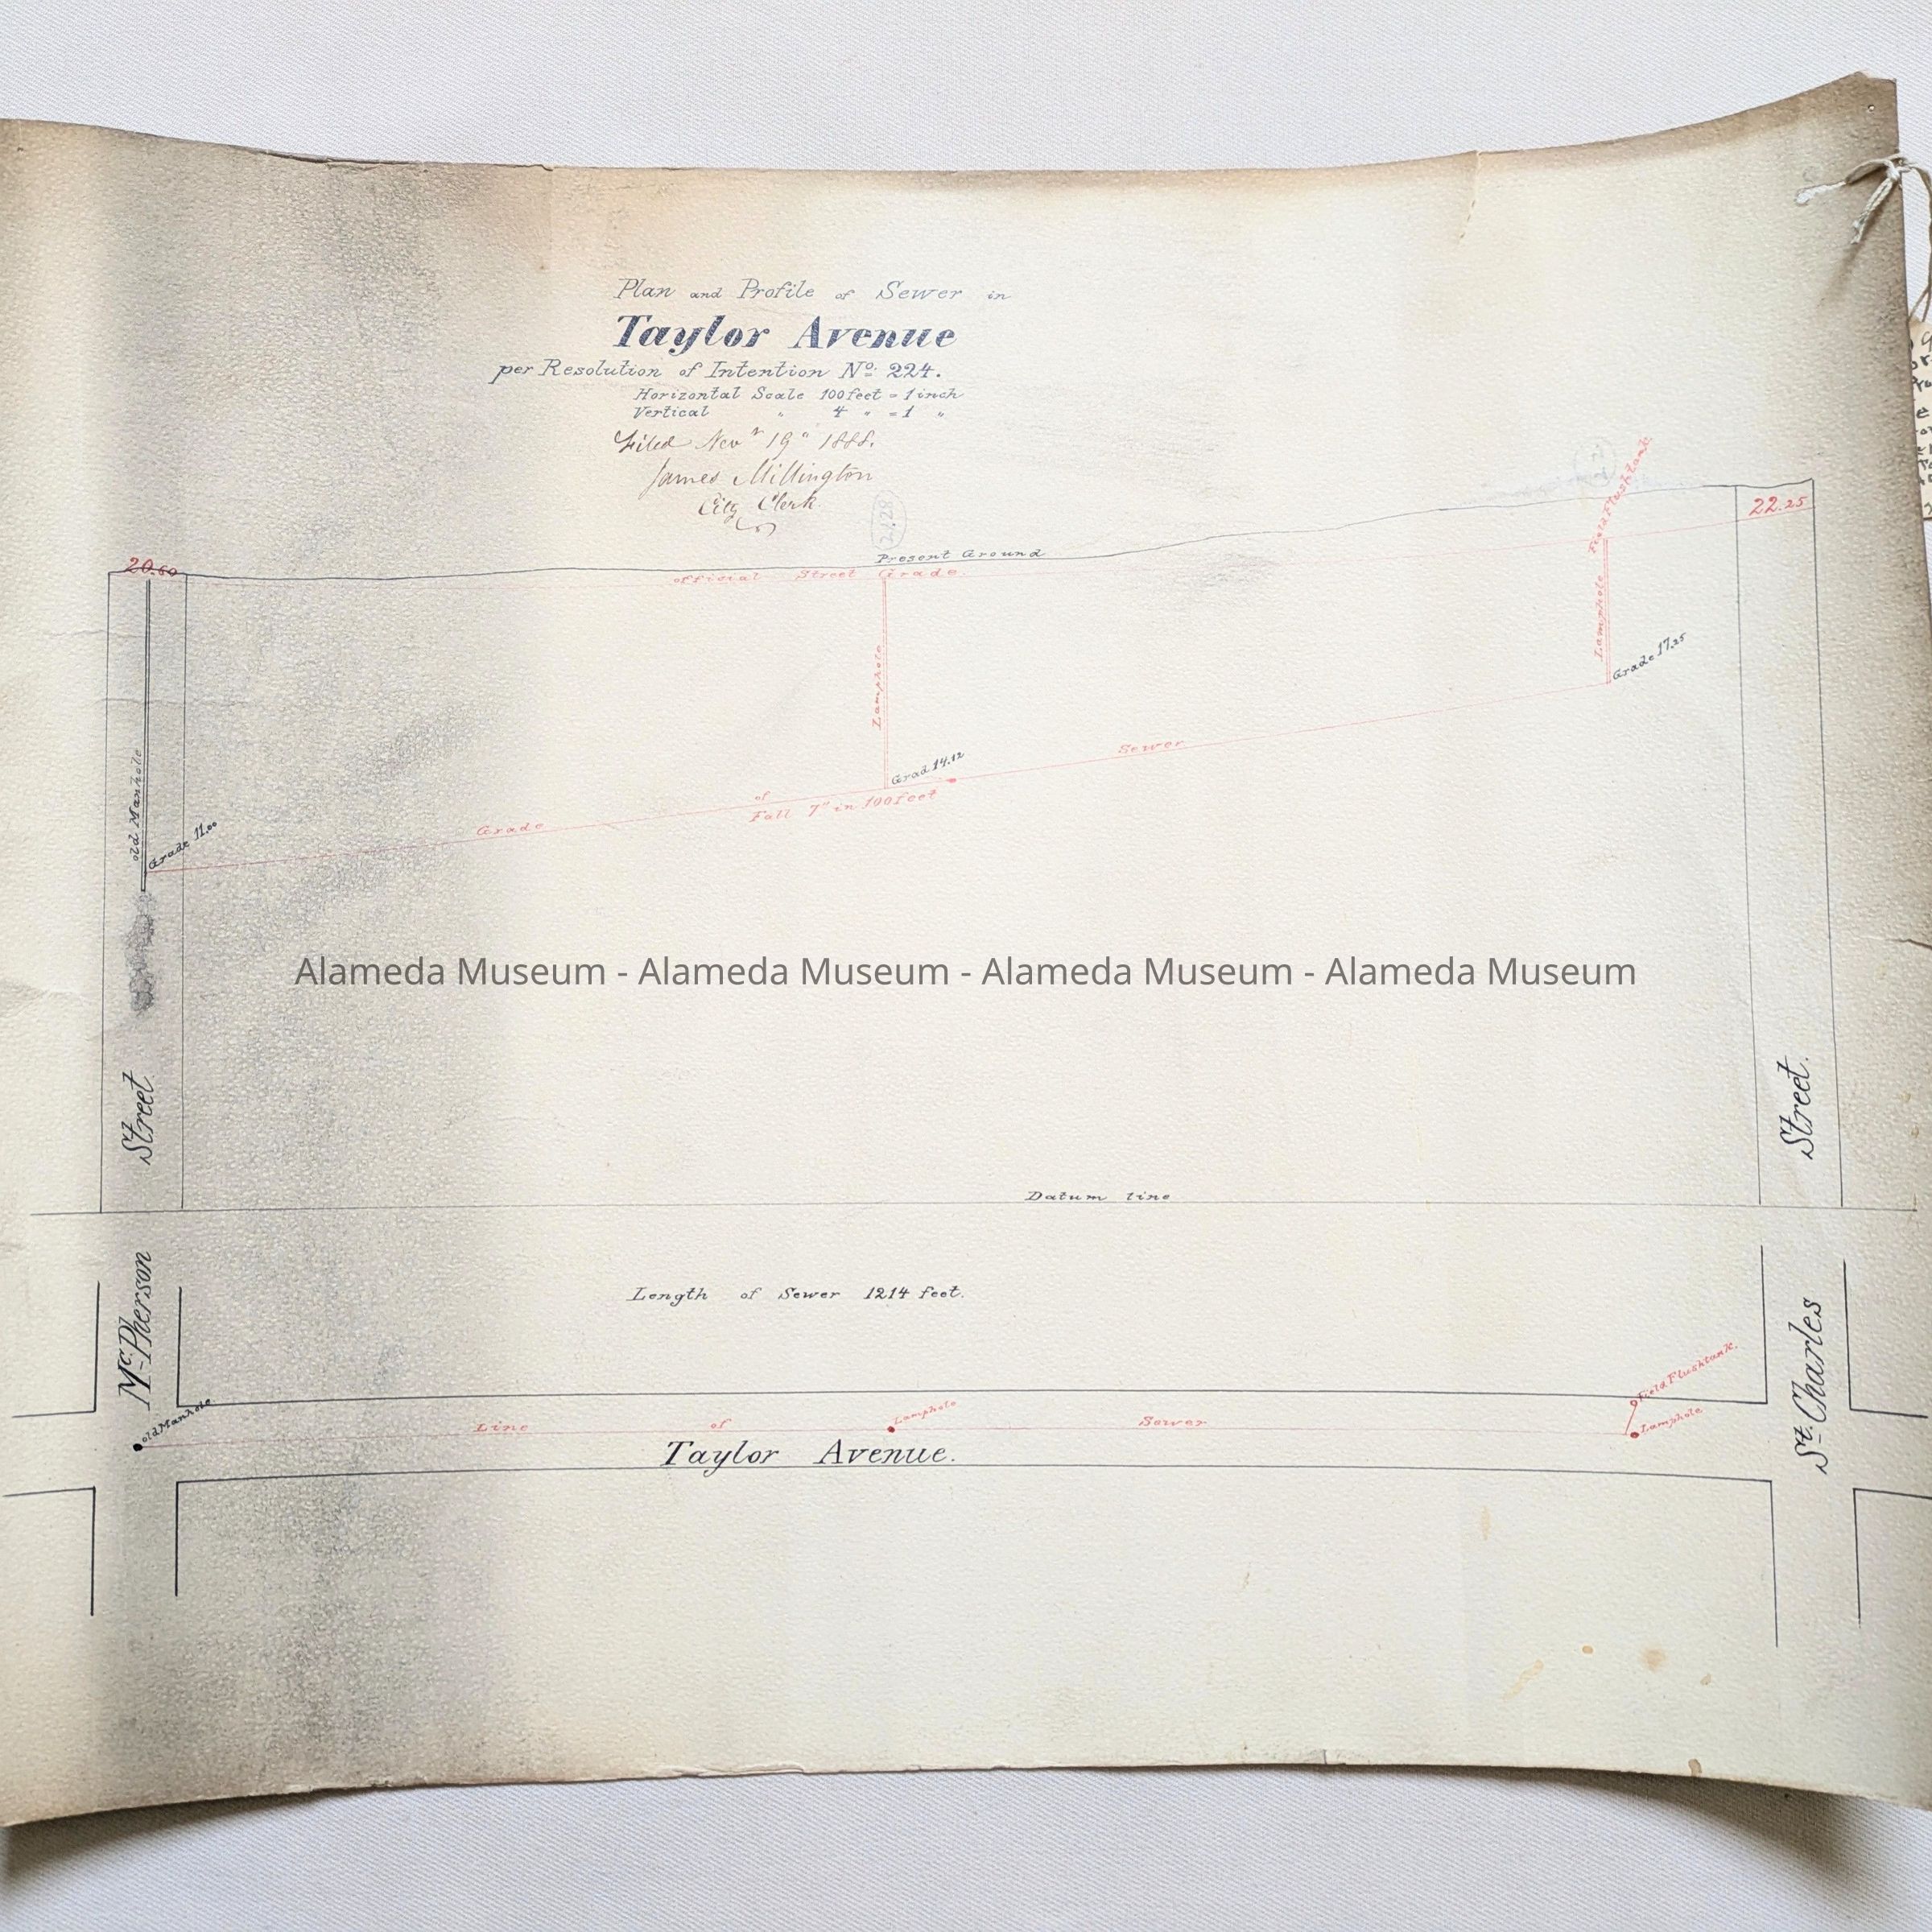 Plan and Profile of Sewer in
Taylor Avenue
per Resolution of Intention No. 224.
Horizontal Scale 100 feet = 1 inch
Vertical " 4 " = 1 "
Filed Novr 19" 1888.
James Millington
City Clerk
21.28
Field Flushtank
22.25
20.60
Present Ground
official Street Grade.
Lamphole
Lamphole
Grade 17.25
old Manhole
Grade 11.00
Grad 14.12
Grade of Sewer
Fall 7" in 100 feet
Alameda Museum - Alameda Museum - Alameda Museum - Alameda Museum
Street.
Street.
Datum line
McPherson
Length of Sewer 1214 feet.
St. Charles
old Manhole
Line of Sewer
Lamphole
Field Flushtank.
Lamphole
Taylor Avenue.